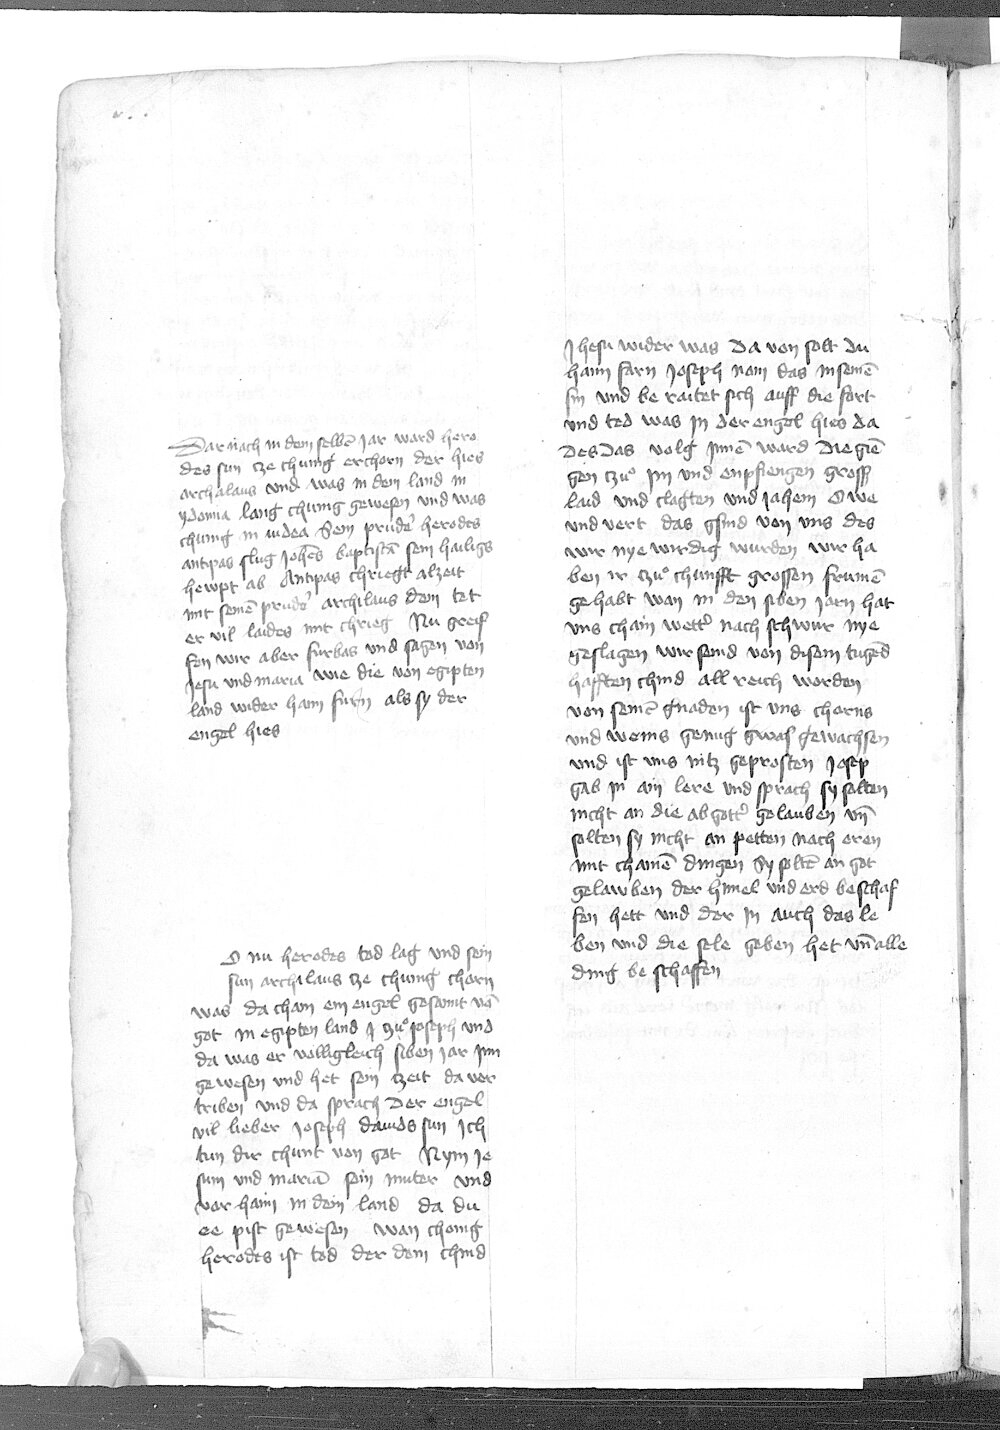 Dar nach in dem selbē jar ward hero
des sun cze chunig erchorn der hies
archalaus vnd was in dem land in
ydomia lang chunig gewesen vnd was
chunig in iudea Sein prudeʳ herodes
antipas slug Johēs baptistā sein hailigs
hewpt ab Antipas chriegt alzeit
mit seinē prudeʳ archilaus dem tet
er vil laides mit chrieg Nu greif
fen wir aber furbas vnd sagen von
Jesu vnd maria wie die von egipten
land wider haim furn als sy der
engel hies
O nu herodes tod lag vnd sein
sun archilaus cze chunig chorn
was da cham ein engel gesant vō
got in egipten land czuͦ joseph vnd
da was er volligleich siben jar jnn
gewesen vnd het sein czeit da ver
triben vnd da sprach Der engel
vil lieber Joseph dauids sun Jch
tun dir chunt von got Nym je
sum vnd mariā sein muter vnd
var haim in dein land da du
ee pist gewesen wan chonig
herodes ist tod der dem chind
Jhesu wider was Da von solt du
haim farn Joseph nam das in seinē
sin vnd be raitet sich auff die fart
vnd ted was jn der engel hies da
des Das volg jnnē ward Die giē
gen czuͦ jm vnd enpfiengen gross
laid vnd clagten vnd jahem O we
vnd vert das gsind von vns des
wir nye wirdig wurden wir ha
ben ir czuͦ chunfft grossen frumē
gehabt wan in den siben jarn hat
vns chain wettʳ nach schwur nye
geslagen wir seind von disem tugēd
hafften chind all reich worden
von seinē gnaden ist vns chorns
vnd weins genug gewachsen
vnd ist vns nitz geprosten Josep
gab jn ain lere vnd sprach sy solten
nicht an die abgottʳ gelauben vn̄
solten sy nicht an petten nach eren
mit chainē dingen Sy soltē an got
gelawben der himel vnd erd beschaf
fen hett vnd der jn auch das le
ben vnd die sele geben het vn̄ alle
ding be schaffen